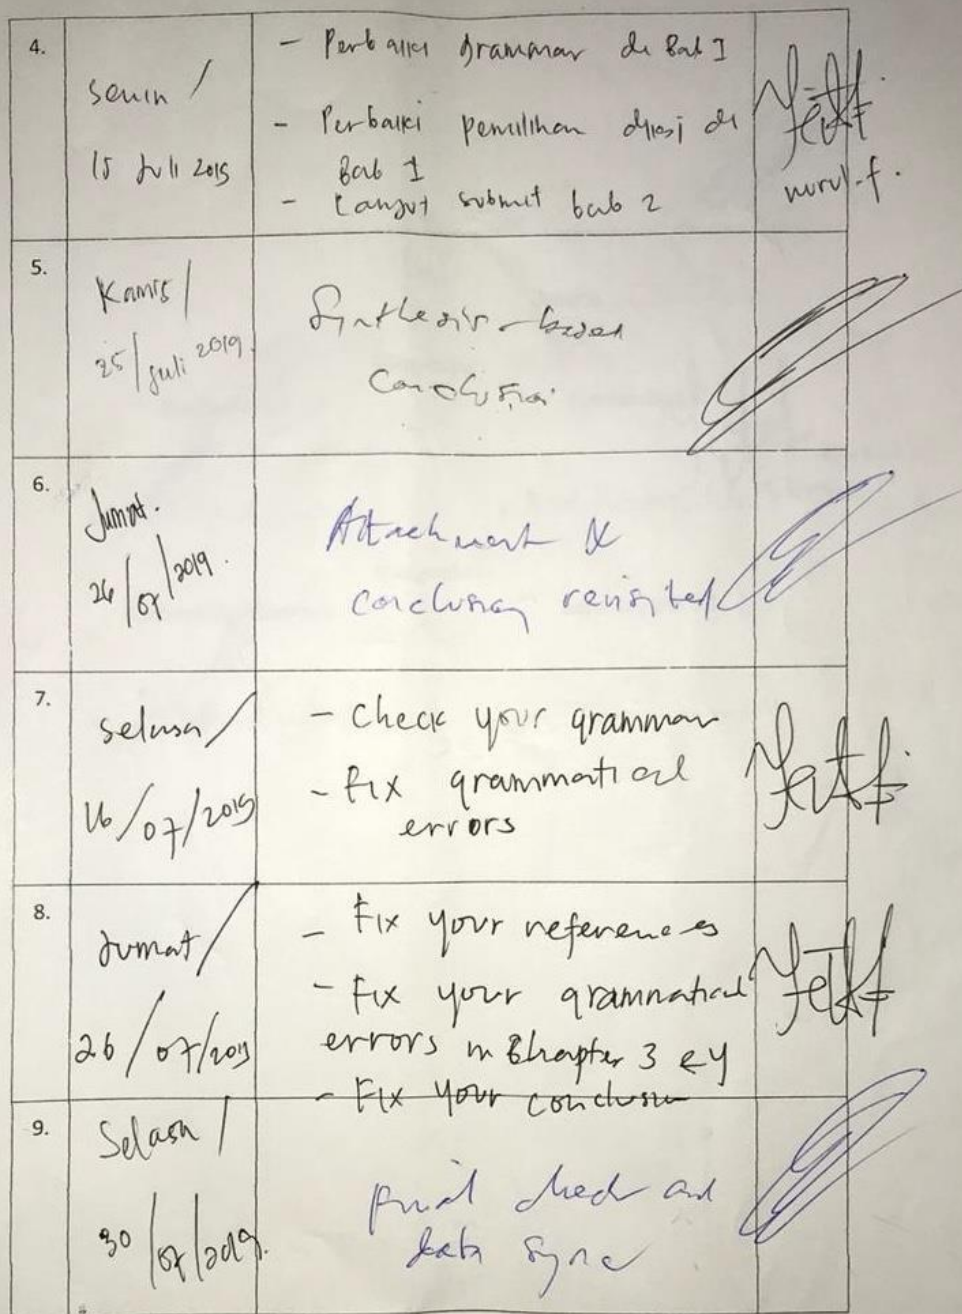 4.
senin /
15 Juli 2019
- Perbaiki grammar di Bab I
- Perbaiki pemilihan diksi di
Bab 1
- Lanjut submit bab 2
nurul.f.
5.
Kamis /
25/Juli 2019.
Synthesis-based
conclusion
6.
Jumat.
26/07/2019.
Attachment &
conclusion revisited
7.
selasa /
16/07/2019
- Check your grammar
- Fix grammatical
errors
8.
Jumat /
26/07/2019
- Fix your references
- Fix your grammatical
errors in Chapter 3 & 4
- Fix your conclusion
9.
Selasa /
30/07/2019.
Final check and
data sync